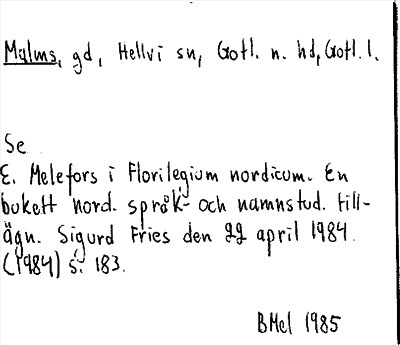 Malms, gd, Hellvi sn, Gotl. n. hd, Gotl. l.
Se
E. Melefors i Florilegium nordicum. En
bukett nord. språk- och namnstud. till-
ägn. Sigurd Fries den 22 april 1984.
(1984) s. 183.
BMel 1985